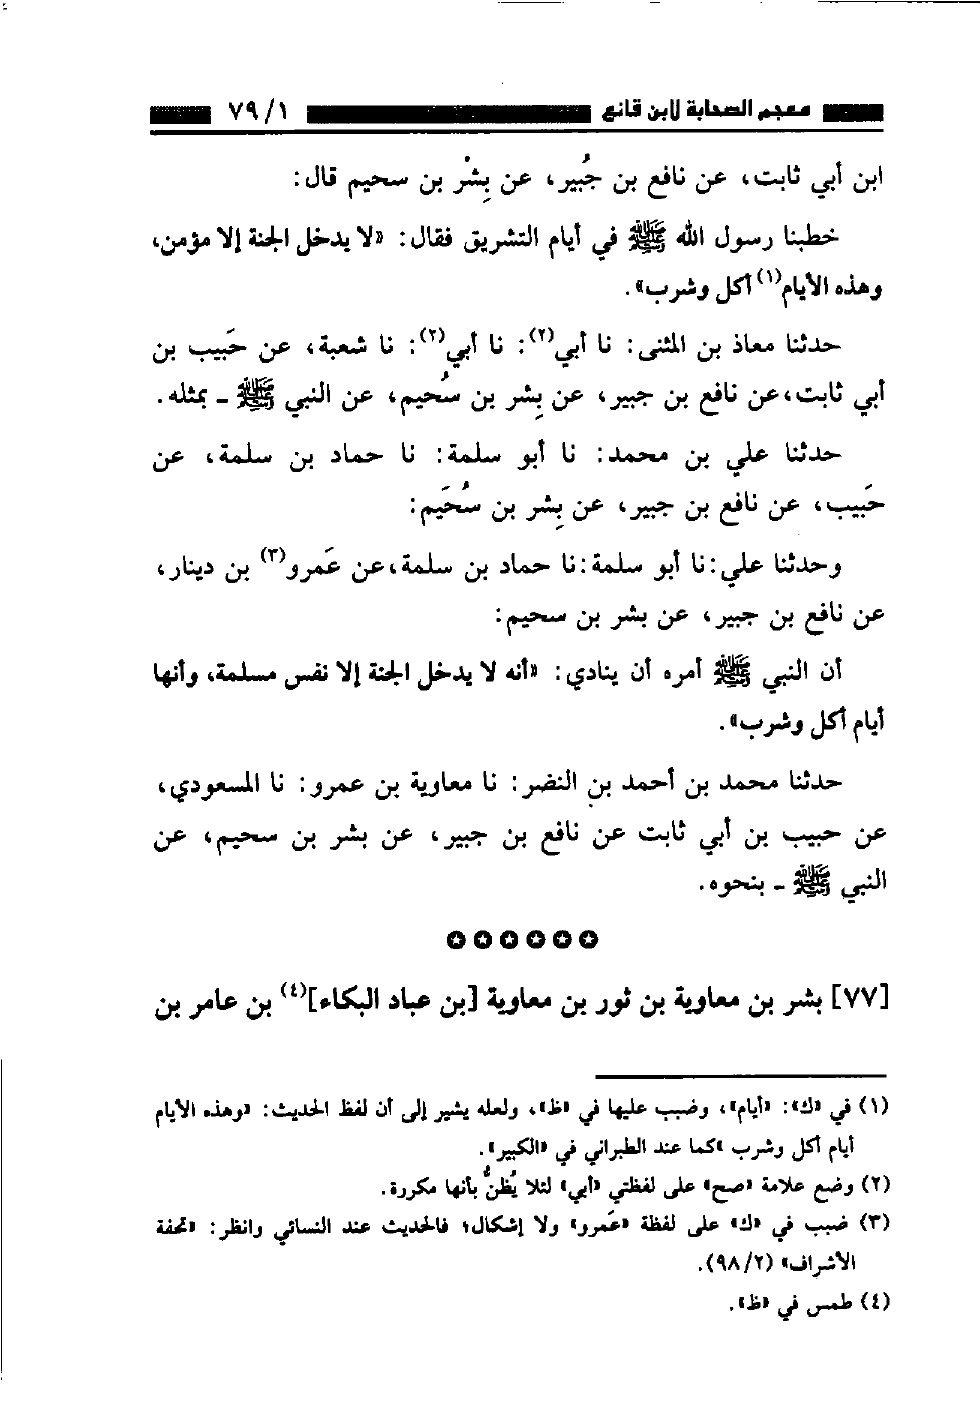 معجم الصحابة لابن قانع ٧٩/١
ابن أبي ثابت، عن نافع بن جُبير، عن بِشْر بن سحيم قال:
خطبنا رسول الله ﷺ في أيام التشريق فقال: «لا يدخل الجنة إلا مؤمن،
وهذه الأيام(١) أكل وشرب».
حدثنا معاذ بن المثنى: نا أبي(٢): نا أبي(٢): نا شعبة، عن حَبيب بن
أبي ثابت، عن نافع بن جبير، عن بِشر بن سُحيم، عن النبي ﷺ ـ بمثله.
حدثنا علي بن محمد: نا أبو سلمة: نا حماد بن سلمة، عن
حَبيب، عن نافع بن جبير، عن بِشر بن سُحَيم:
وحدثنا علي: نا أبو سلمة: نا حماد بن سلمة، عن عَمرو(٣) بن دينار،
عن نافع بن جبير، عن بشر بن سحيم:
أن النبي ﷺ أمره أن ينادي: «أنه لا يدخل الجنة إلا نفس مسلمة، وأنها
أيام أكل وشرب».
حدثنا محمد بن أحمد بن النضر: نا معاوية بن عمرو: نا المسعودي،
عن حبيب بن أبي ثابت عن نافع بن جبير، عن بشر بن سحيم، عن
النبي ﷺ ـ بنحوه.
✪✪✪✪✪✪
[٧٧] بشر بن معاوية بن ثور بن معاوية [بن عباد البكاء](٤) بن عامر بن
(١) في «ك»: «أيام»، وضبب عليها في «ظ»، ولعله يشير إلى أن لفظ الحديث: «وهذه الأيام
أيام أكل وشرب» كما عند الطبراني في «الكبير».
(٢) وضع علامة «صح» على لفظتي «أبي» لئلا يُظنُّ بأنها مكررة.
(٣) ضبب في «ك» على لفظة «عَمرو» ولا إشكال؛ فالحديث عند النسائي وانظر: «تحفة
الأشراف» (٩٨/٢).
(٤) طمس في «ظ».